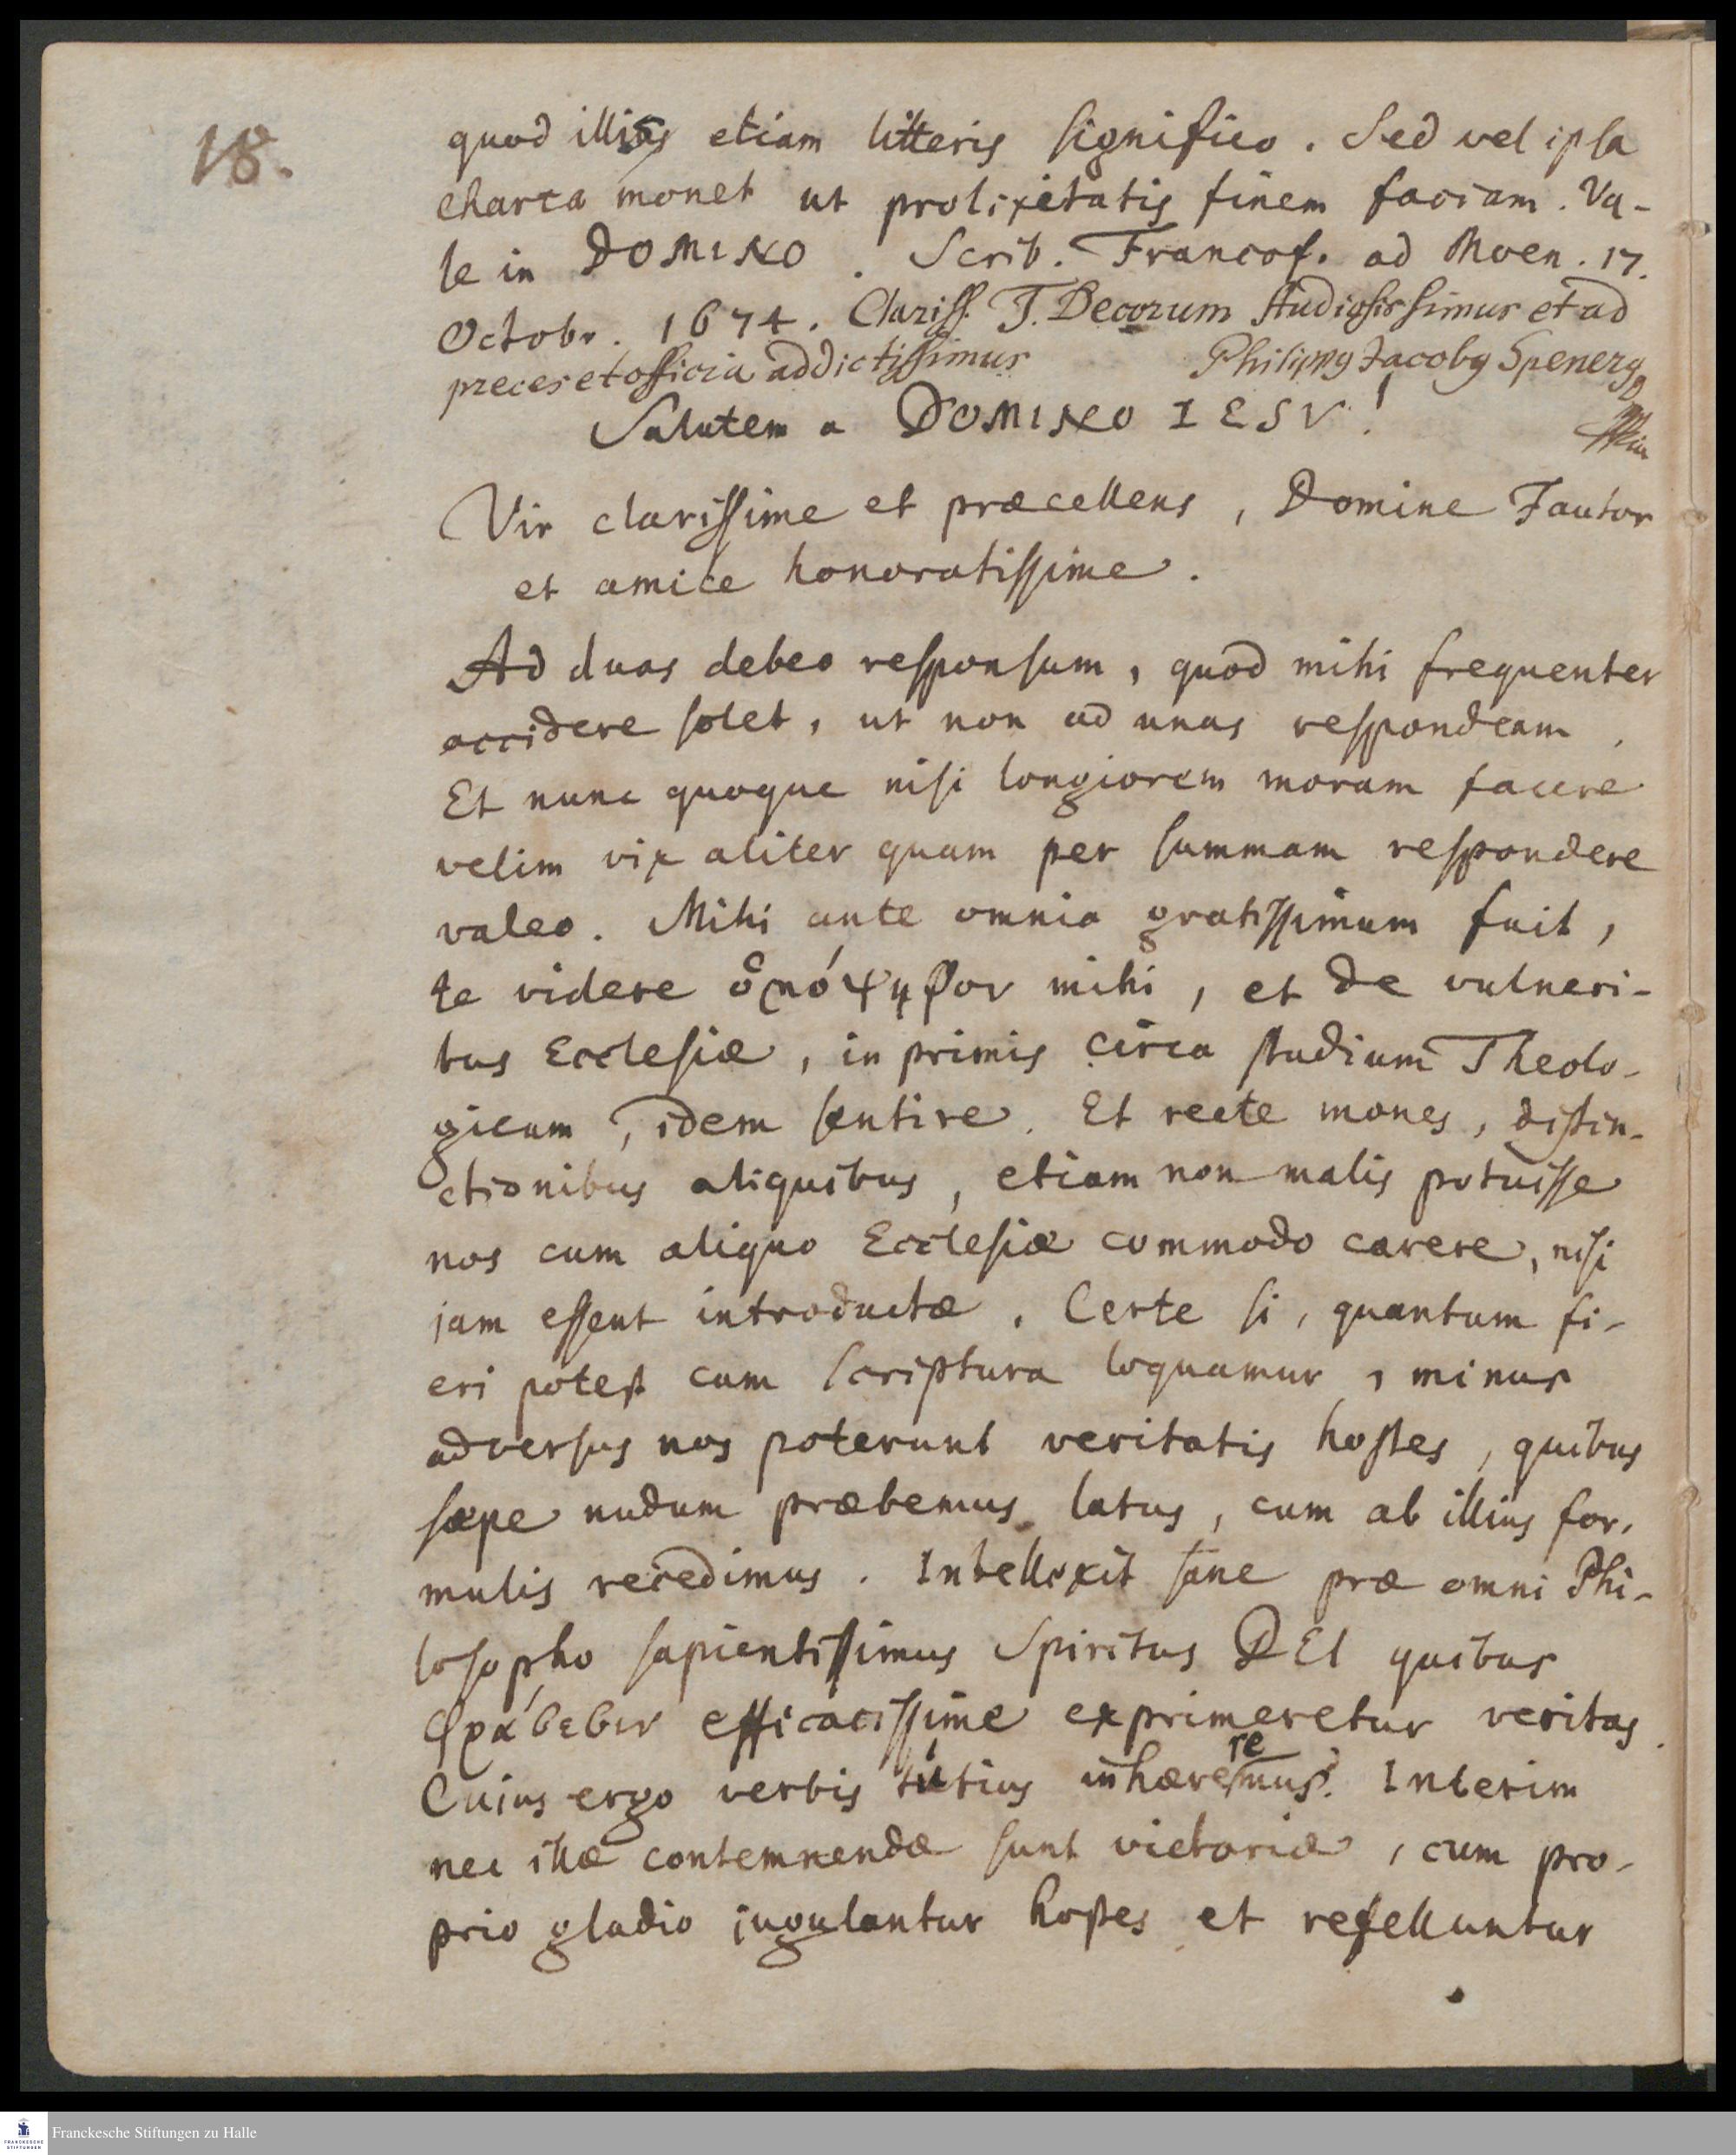 18.
quod illis etiam litteris significo. Sed vel ipsa
charta monet ut prolixitatis finem faciam. Va-
le in DOMINO. Scrib. Francof. ad Moen. 17.
Octobr. 1674. Clariss. T. Decorum studiosissimus et ad
preces et officia addictissimus Philippus Jacobus Spenerus D
Salutem a DOMINO IESV!
Vir clarissime et præcellens, Domine Fautor
et amice honoratissime.
Ad duas debeo responsum, quod mihi frequenter
accidere solet, ut non ad unas respondeam.
Et nunc quoque nisi longiorem moram facere
velim vix aliter quam per summam respondere
valeo. Mihi ante omnia gratissimum fuit,
te videre ὁμόψηφον mihi, et de vulneri-
bus Ecclesiæ, in primis circa studium Theolo-
gicum, idem sentire. Et recte mones, distin-
ctionibus aliquibus, etiam non malis potuisse
nos cum aliquo Ecclesiæ commodo carere, nisi
jam essent introductæ. Certe si, quantum fi-
eri potest cum scriptura loquamur, minus
adversus nos poterunt veritatis hostes, quibus
sæpe nudum præbemus latus, cum ab illius for-
mulis recedimus. Intellexit sane præ omni Phi-
losopho sapientissimus Spiritus DEI quibus
φράσεσιν efficacissime exprimeretur veritas.
Cuius ergo verbis tutius inhæremus. Interim
re
nec illæ contemnendæ sunt victoriæ, cum pro-
prio gladio jugulantur hostes et refelluntur
Franckesche Stiftungen zu Halle
FRANCKESCHE
STIFTUNGEN